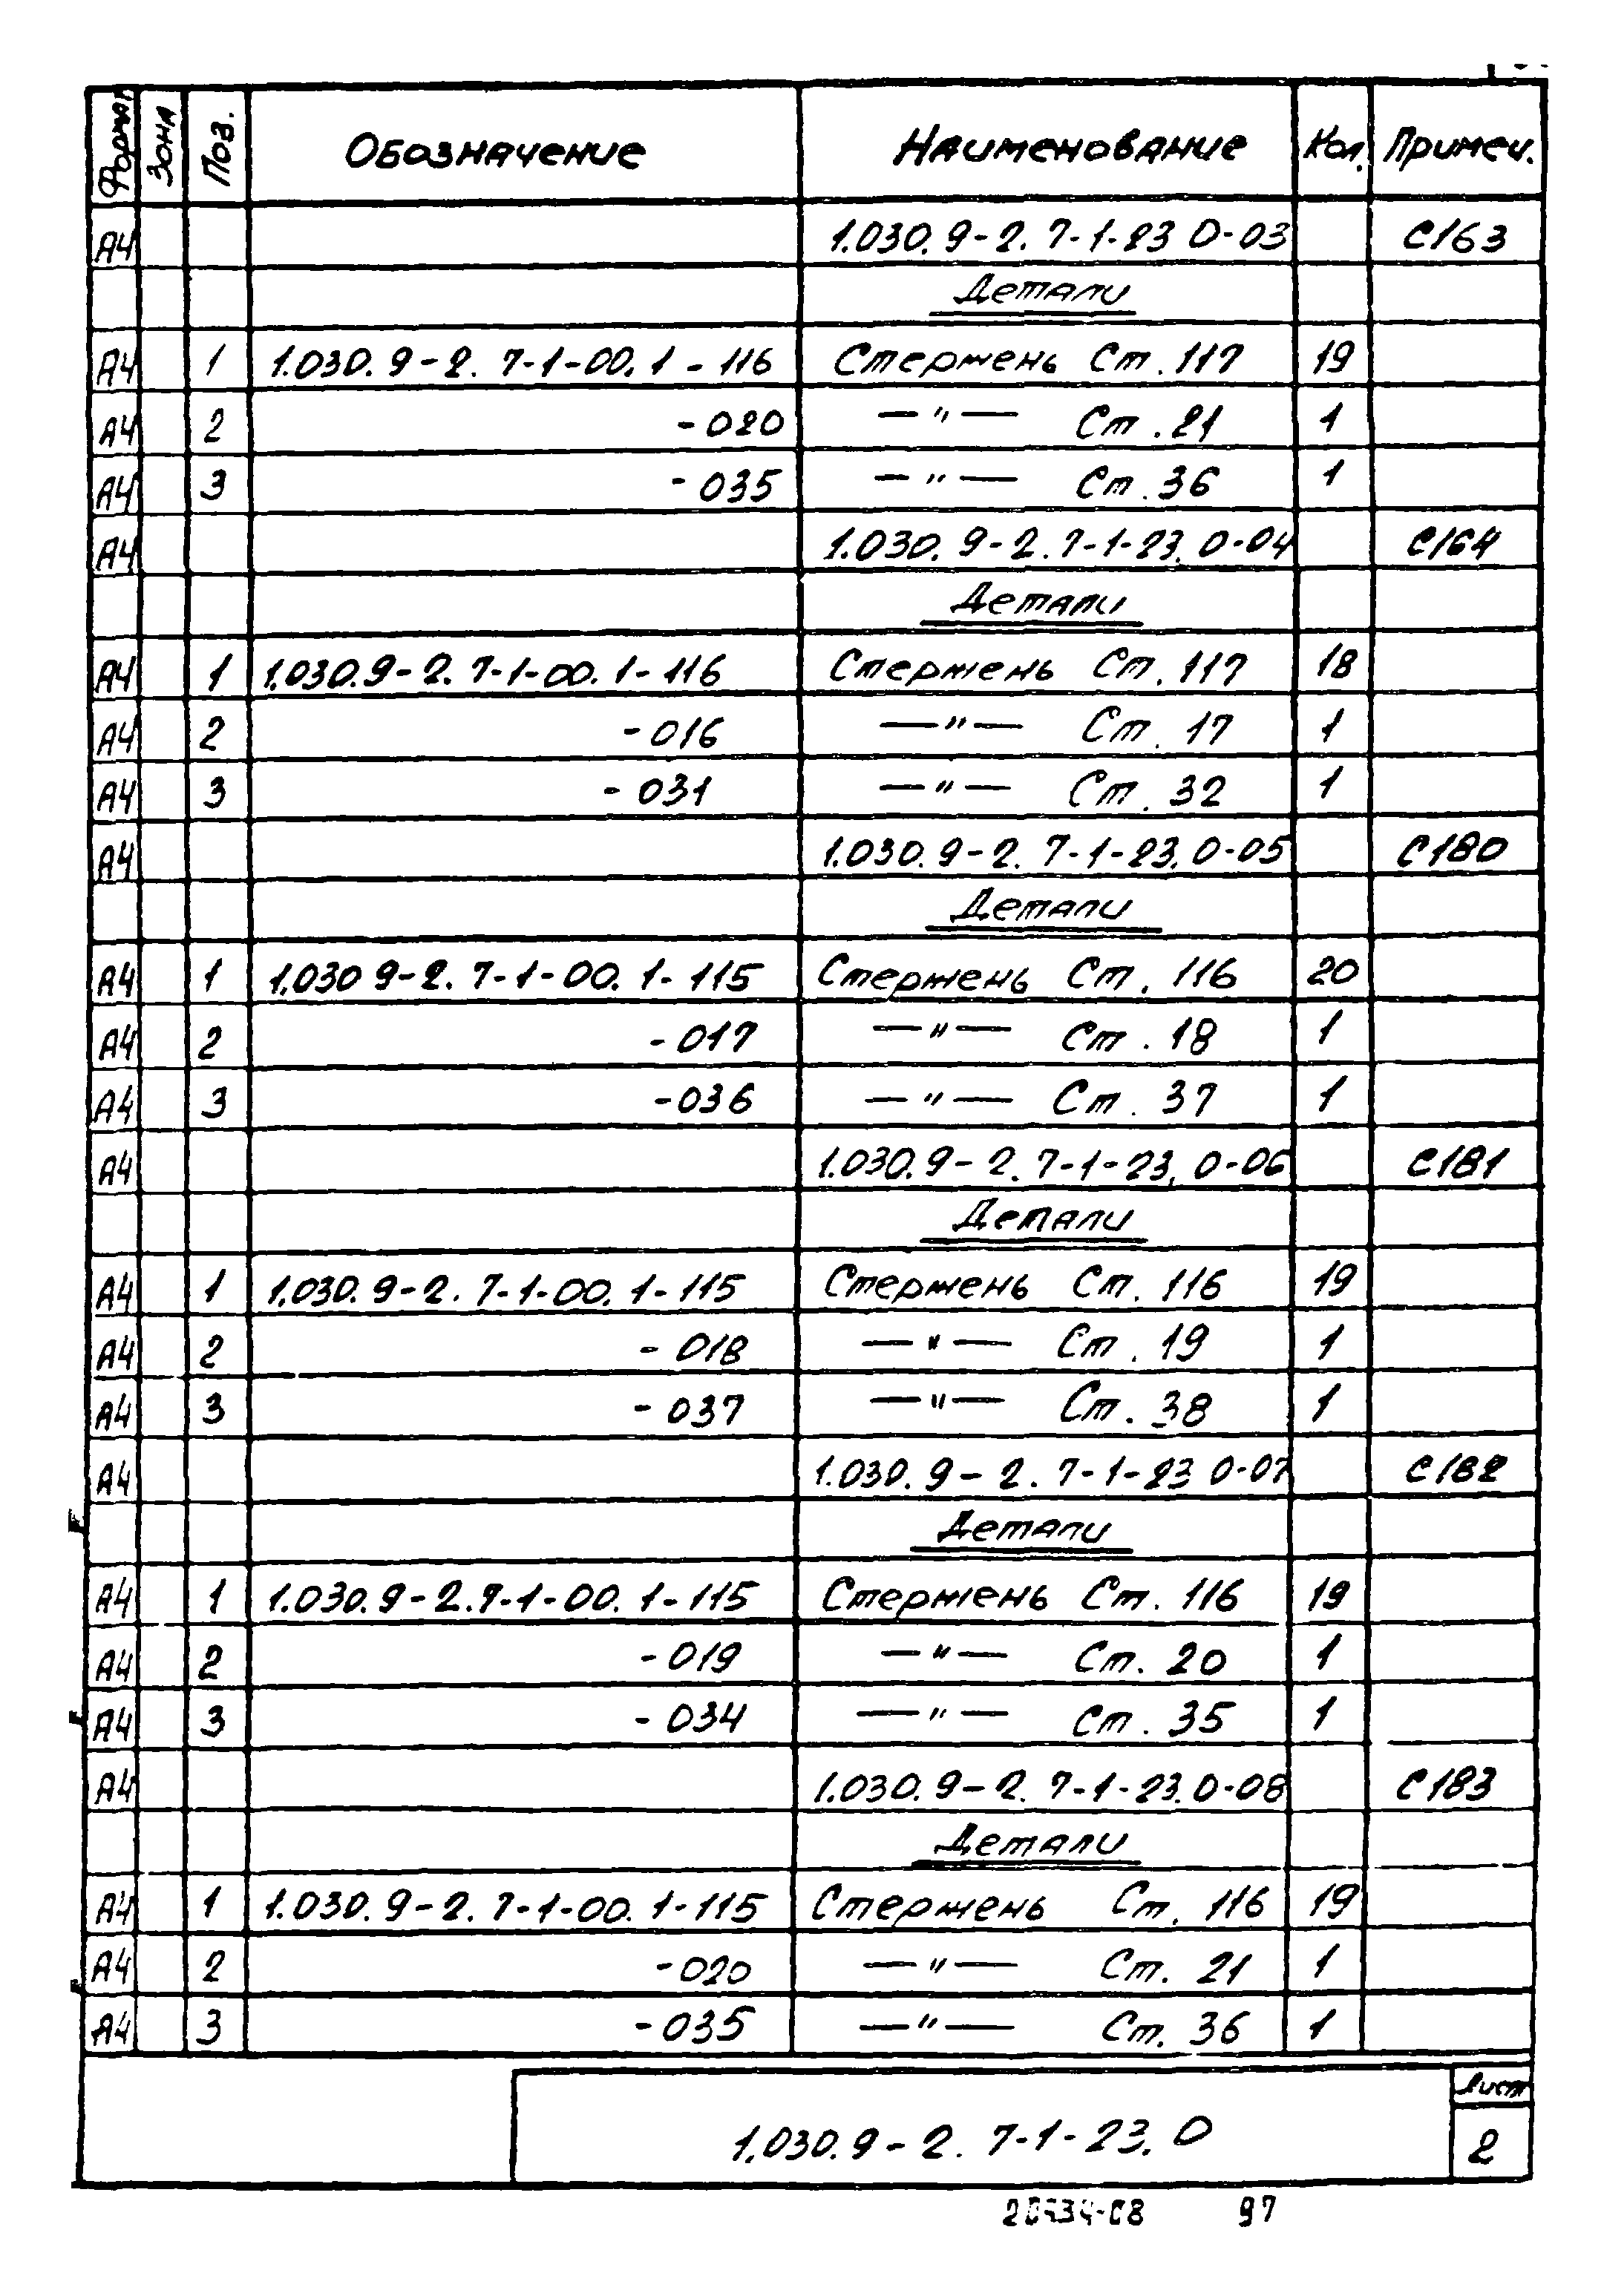 Формат Зона Поз. Обозначение Наименование Кол. Примеч.
А4 1.030.9-2.7-1-23 0-03 С163
Детали
А4 1 1.030.9-2.7-1-00.1-116 Стержень Ст.117 19
А4 2 -020 —"— Ст.21 1
А4 3 -035 —"— Ст.36 1
А4 1.030.9-2.7-1-23.0-04 С164
Детали
А4 1 1.030.9-2.7-1-00.1-116 Стержень Ст.117 18
А4 2 -016 —"— Ст.17 1
А4 3 -031 —"— Ст.32 1
А4 1.030.9-2.7-1-23.0-05 С180
Детали
А4 1 1.030 9-2.7-1-00.1-115 Стержень Ст.116 20
А4 2 -017 —"— Ст.18 1
А4 3 -036 —"— Ст.37 1
А4 1.030.9-2.7-1-23.0-06 С181
Детали
А4 1 1.030.9-2.7-1-00.1-115 Стержень Ст.116 19
А4 2 -018 —"— Ст.19 1
А4 3 -037 —"— Ст.38 1
А4 1.030.9-2.7-1-23 0-07 С182
Детали
А4 1 1.030.9-2.7-1-00.1-115 Стержень Ст.116 19
А4 2 -019 —"— Ст.20 1
А4 3 -034 —"— Ст.35 1
А4 1.030.9-2.7-1-23.0-08 С183
Детали
А4 1 1.030.9-2.7-1-00.1-115 Стержень Ст.116 19
А4 2 -020 —"— Ст.21 1
А4 3 -035 —"— Ст.36 1
Лист
1.030.9-2.7-1-23.0 2
97